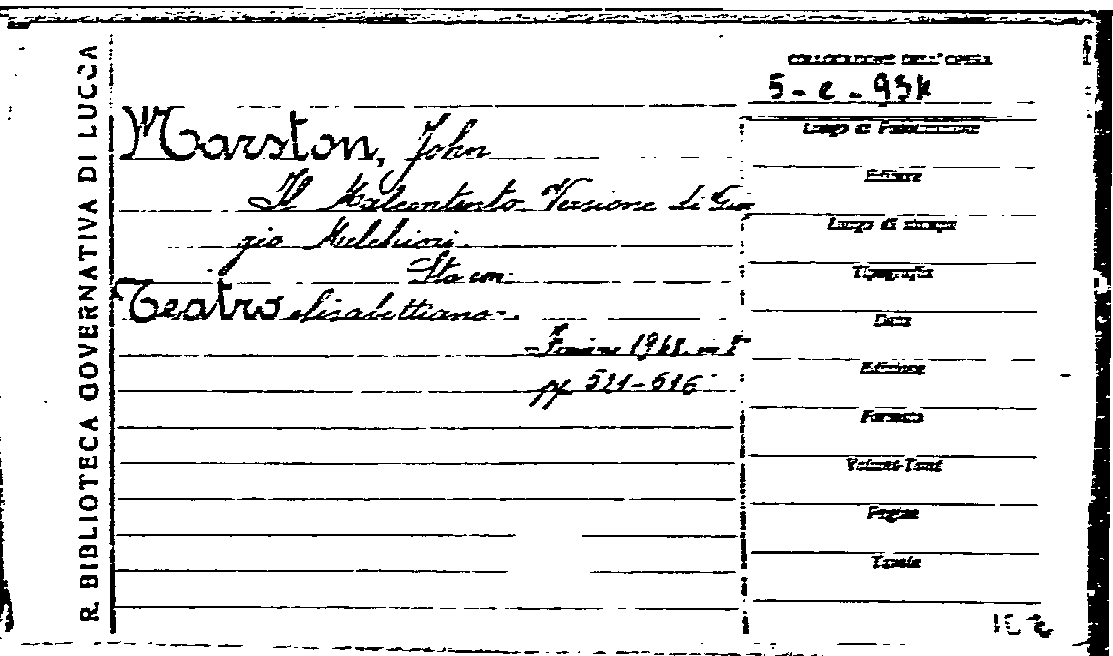 R. BIBLIOTECA GOVERNATIVA DI LUCCA
COLLOCAZIONE DELL'OPERA
5-e-93
Marston, John
Il Malcontento. Versione di Gior
gio Melchiori.
Sta con:
Teatro elisabettiano.
Firenze 1948. in 8°
pp. 521-616
Luogo di Pubblicazione
Editore
Luogo di stampa
Tipografia
Data
Edizione
Formato
Volumi-Tomi
Pagine
Tavole